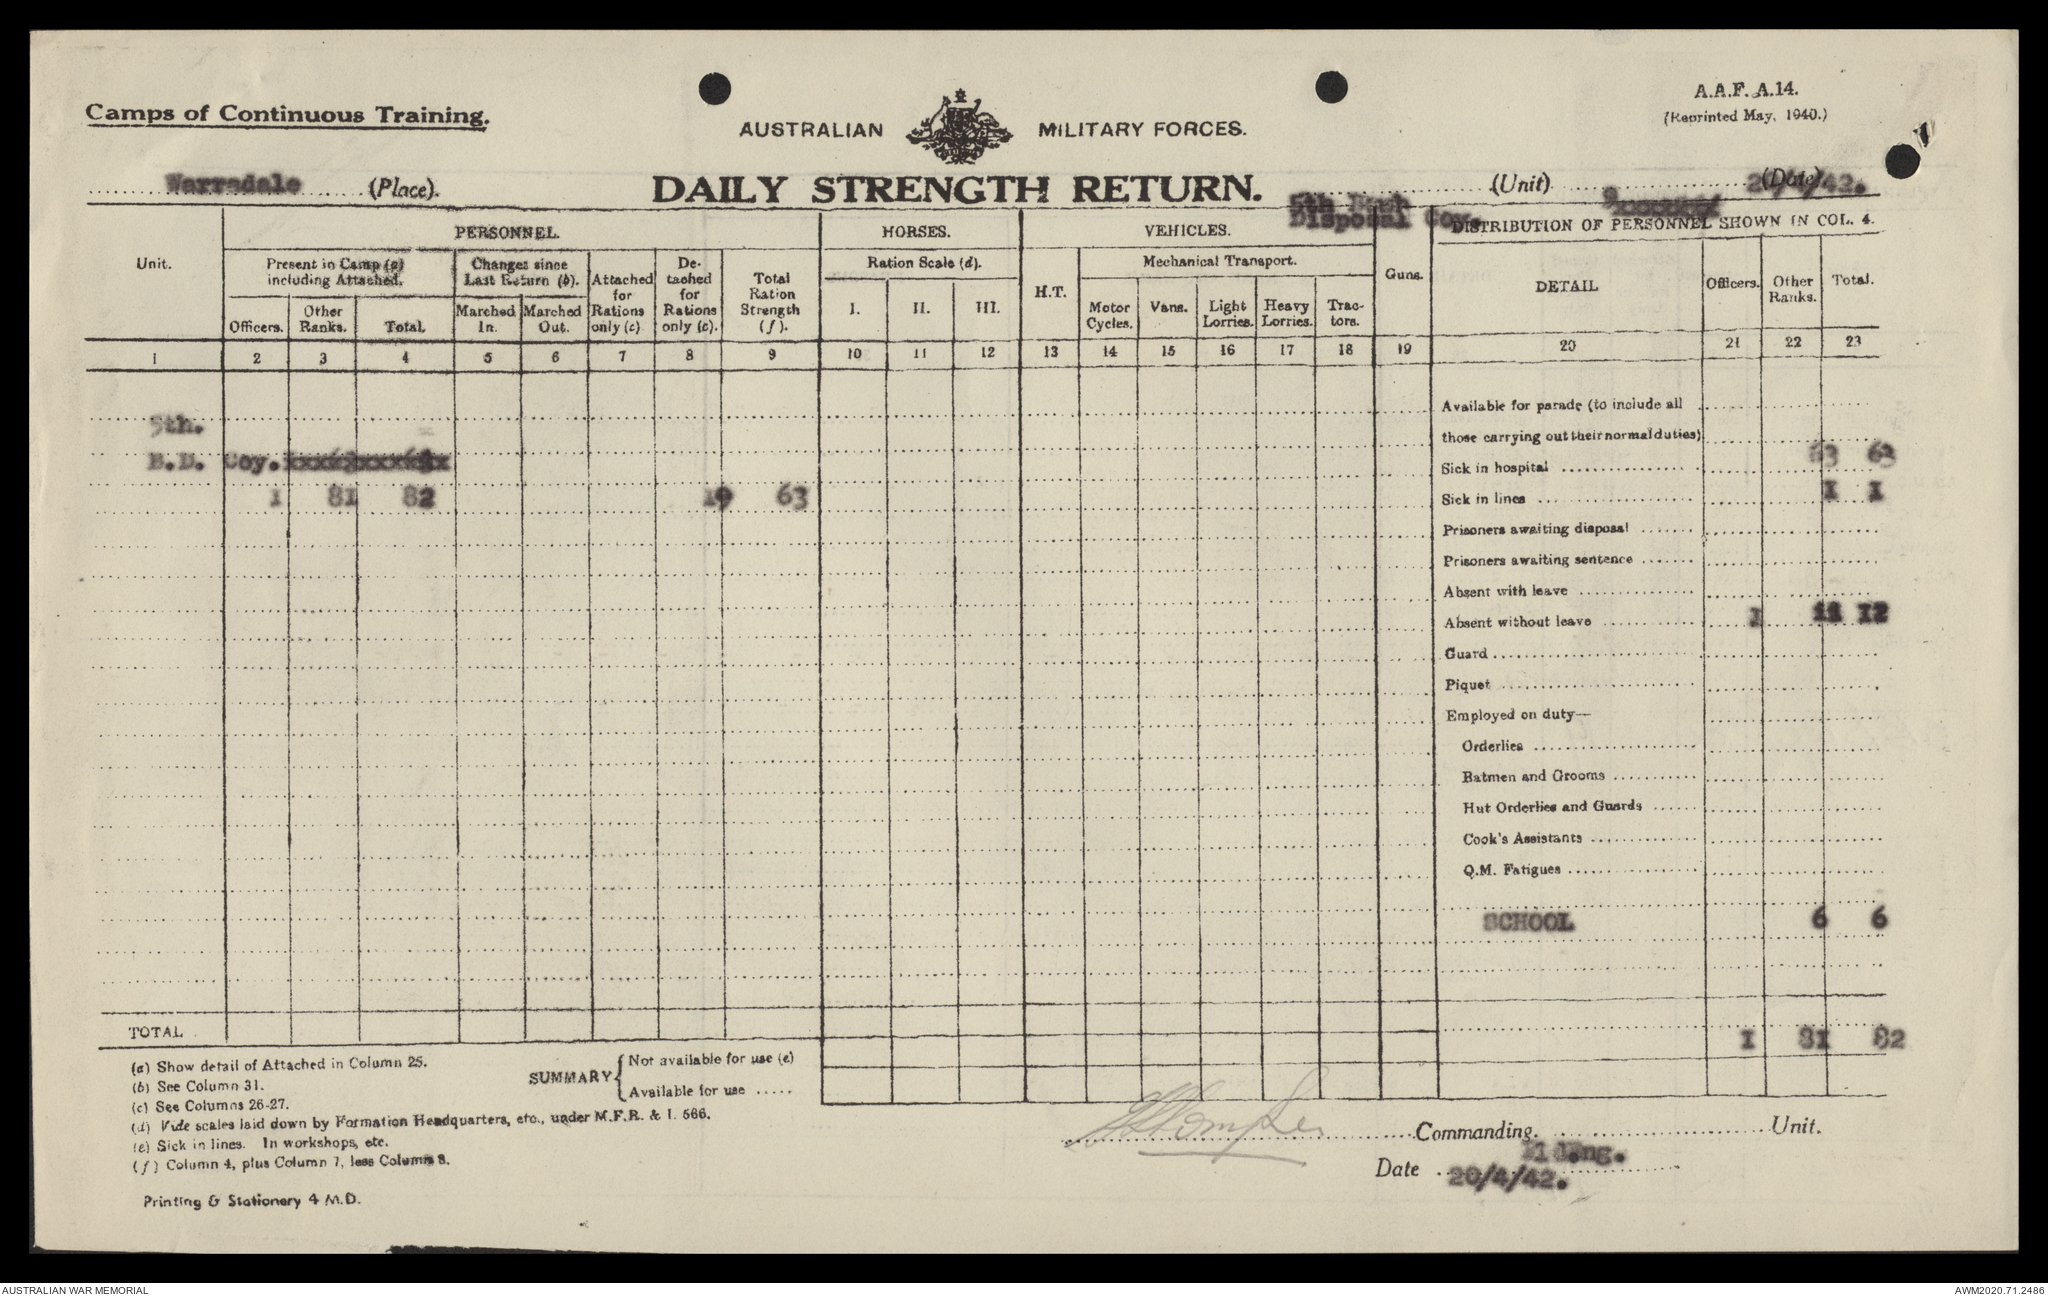 Camps of Continuous Training.
AUSTRALIAN MILITARY FORCES.
A.A.F. A.14.
(Reprinted May, 1940.)
Warradale (Place).
DAILY STRENGTH RETURN.
5th Bomb Disposal Coy. (Unit) (Date) /42.
Unit.
PERSONNEL.
HORSES.
VEHICLES.
Guns.
DISTRIBUTION OF PERSONNEL SHOWN IN COL. 4.
Present in Camp (a) including Attached.
Changes since Last Return (b).
Attached for Rations only (c)
De-tached for Rations only (c).
Total Ration Strength (f).
Ration Scale (d).
H.T.
Mechanical Transport.
DETAIL
Officers.
Other Ranks.
Total.
Officers.
Other Ranks.
Total.
Marched In.
Marched Out.
I.
II.
III.
Motor Cycles.
Vans.
Light Lorries.
Heavy Lorries.
Trac-tors.
1 2 3 4 5 6 7 8 9 10 11 12 13 14 15 16 17 18 19 20 21 22 23
5th.
B.D. Coy.
1 81 82 19 63
Available for parade (to include all
those carrying out their normal duties)
63 63
Sick in hospital
1 1
Sick in lines
Prisoners awaiting disposal
Prisoners awaiting sentence
Absent with leave
1 11 12
Absent without leave
Guard
Piquet
Employed on duty—
Orderlies
Batmen and Grooms
Hut Orderlies and Guards
Cook's Assistants
Q.M. Fatigues
SCHOOL 6 6
TOTAL
1 81 82
(a) Show detail of Attached in Column 25.
(b) See Column 31.
(c) See Columns 26-27.
(d) Vide scales laid down by Formation Headquarters, etc., under M.F.R. & I. 566.
(e) Sick in lines. In workshops, etc.
(f) Column 4, plus Column 7, less Column 8.
SUMMARY
Not available for use (e)
Available for use .....
Commanding. Unit.
Date 20/4/42.
Printing & Stationery 4 M.D.
AUSTRALIAN WAR MEMORIAL
AWM2020.71.2486